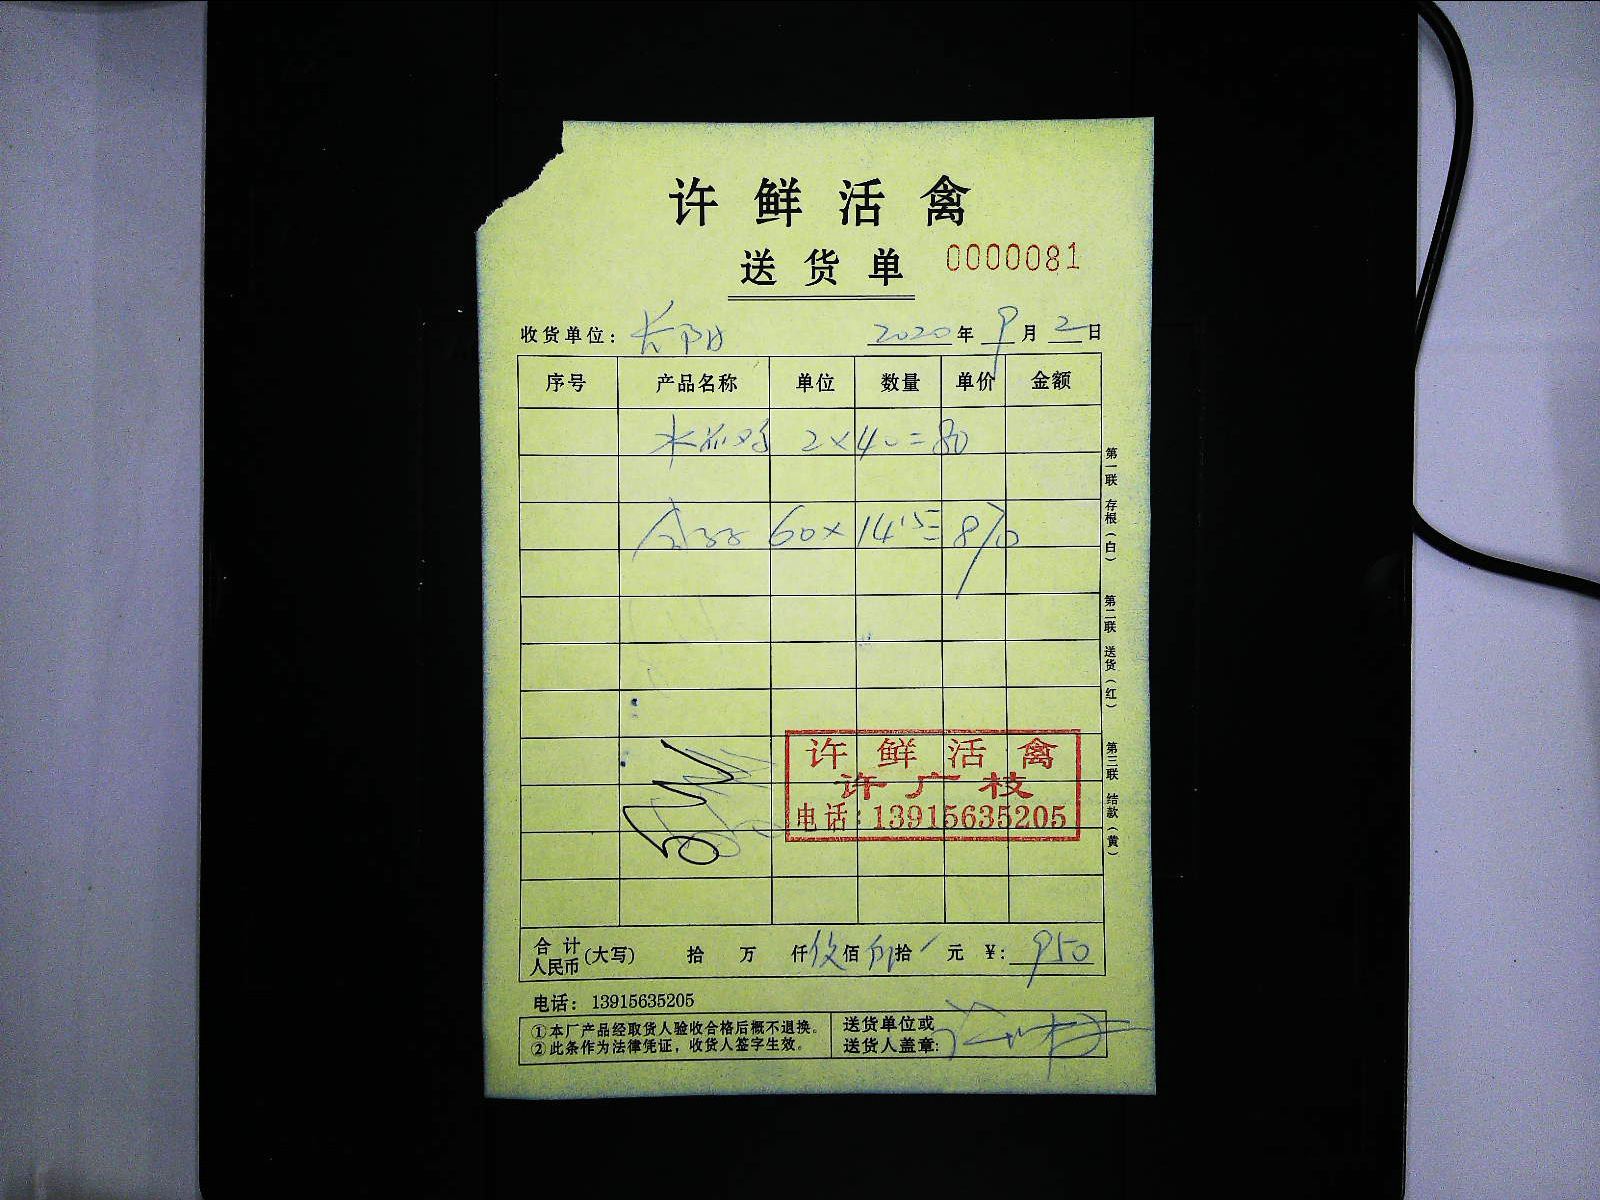 许鲜活禽
送货单 0000081
收货单位: 长阳 2020年9月2日
序号 产品名称 单位 数量 单价 金额
2×40=80
60×14.5=870
第一联 存根(白) 第二联 送货(红) 第三联 结款(黄)
许鲜活禽
许广枝
电话:13915635205
合计人民币(大写) 拾 万 仟 玖佰 拾 元 ¥: 950
电话: 13915635205
①本厂产品经取货人验收合格后概不退换。
②此条作为法律凭证,收货人签字生效。
送货单位或
送货人盖章: